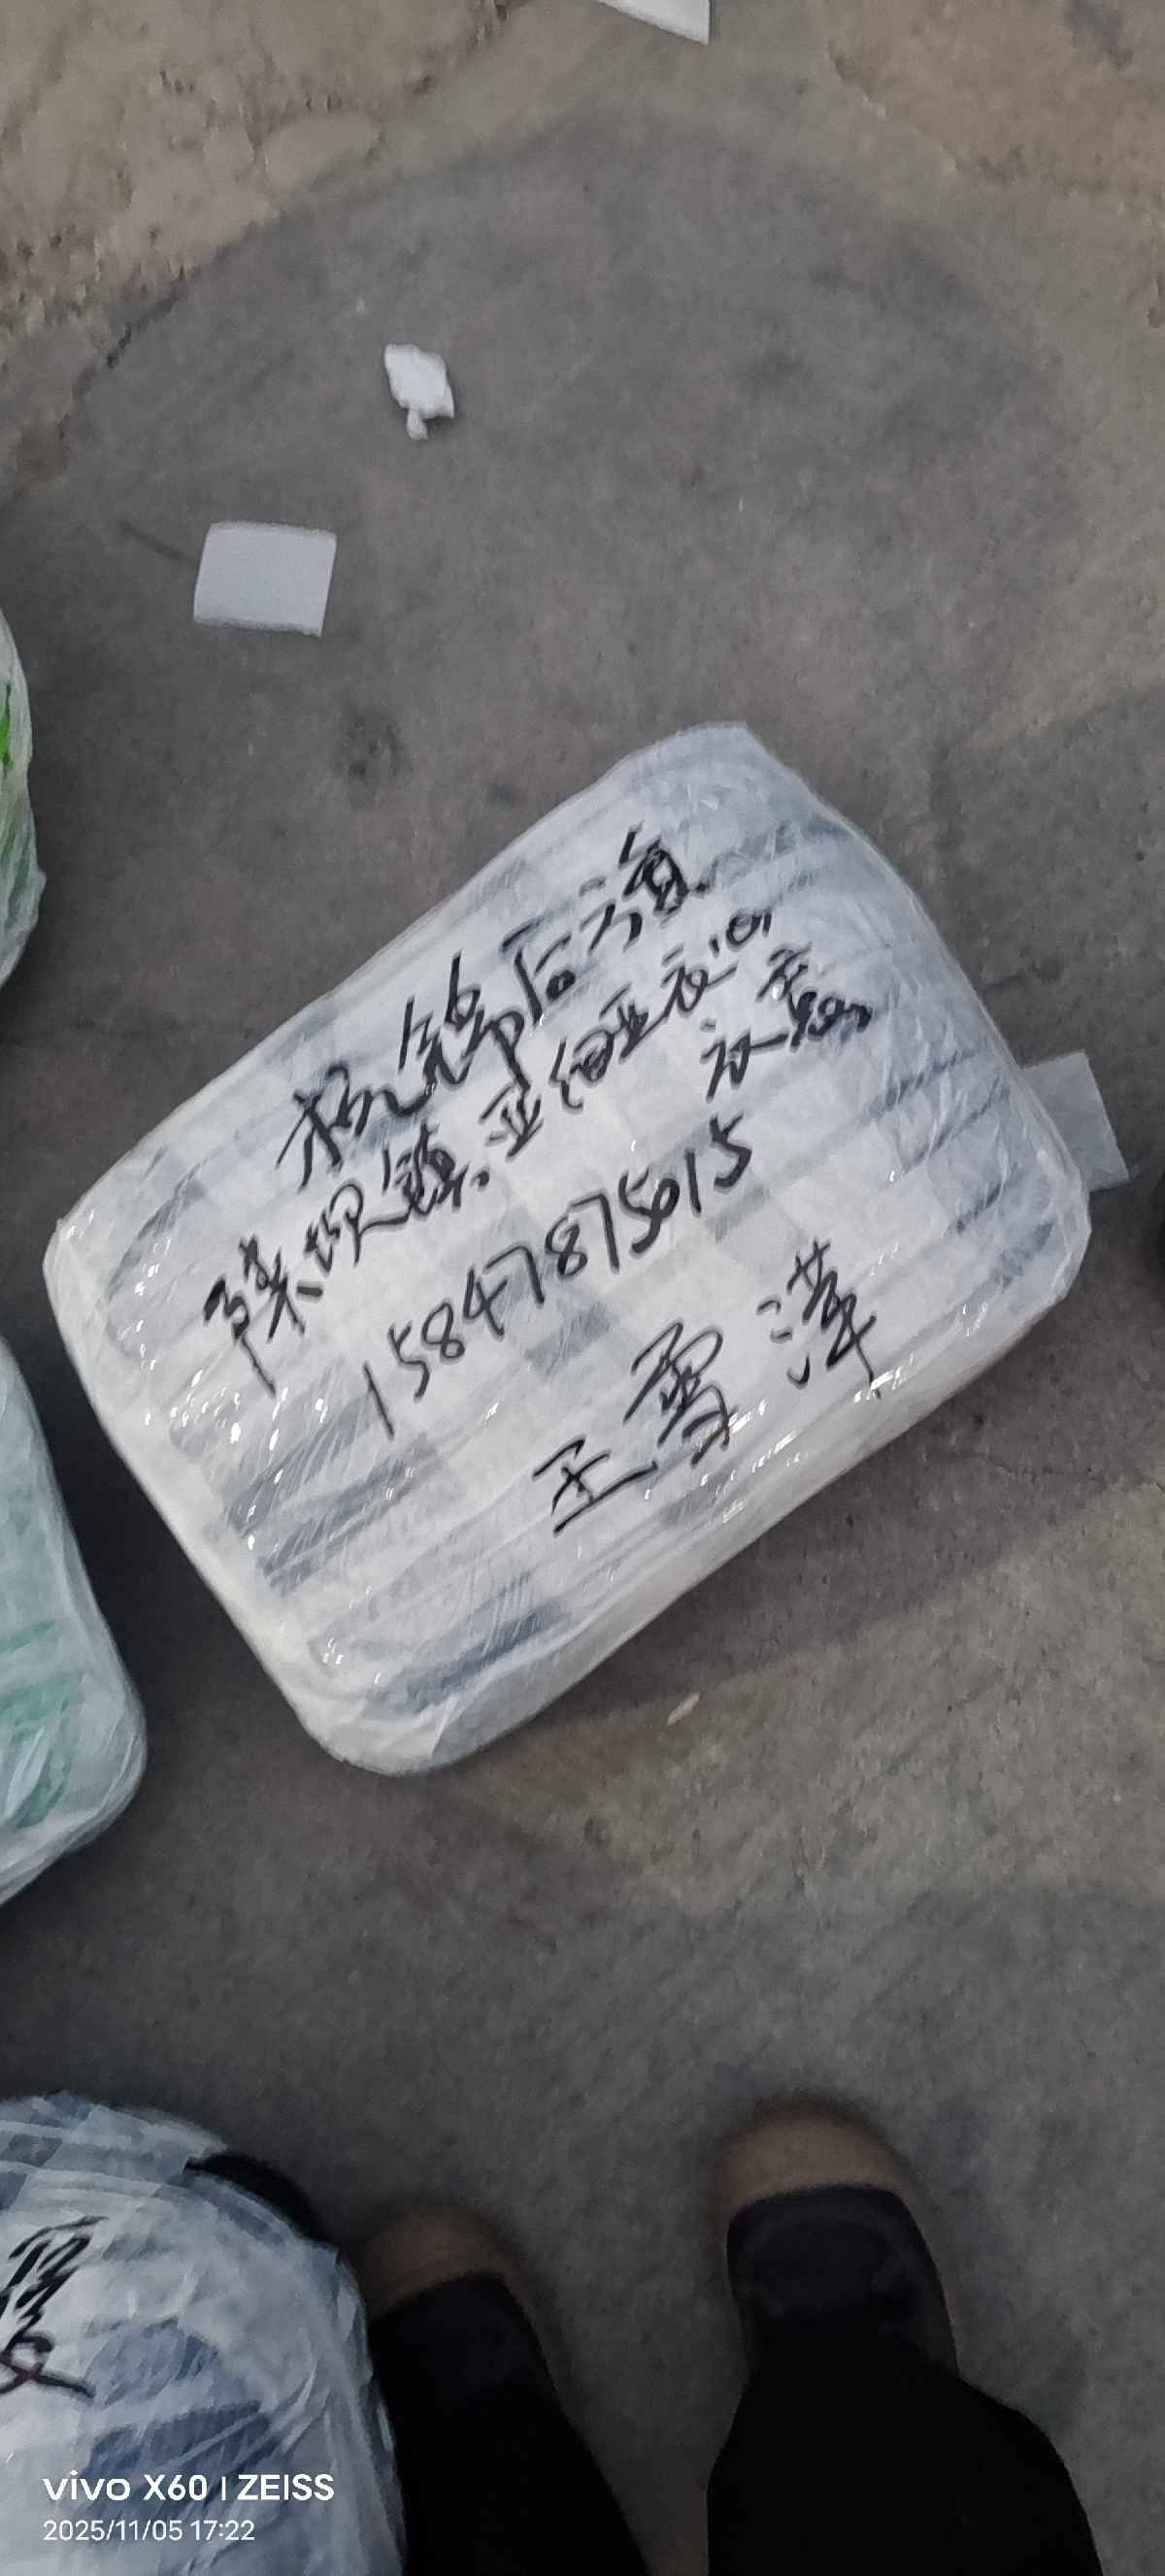 杭锦后旗
陕坝镇.亚细亚衣间
衣意
15847875015
王雪萍
vivo X60 | ZEISS
2025/11/05 17:22